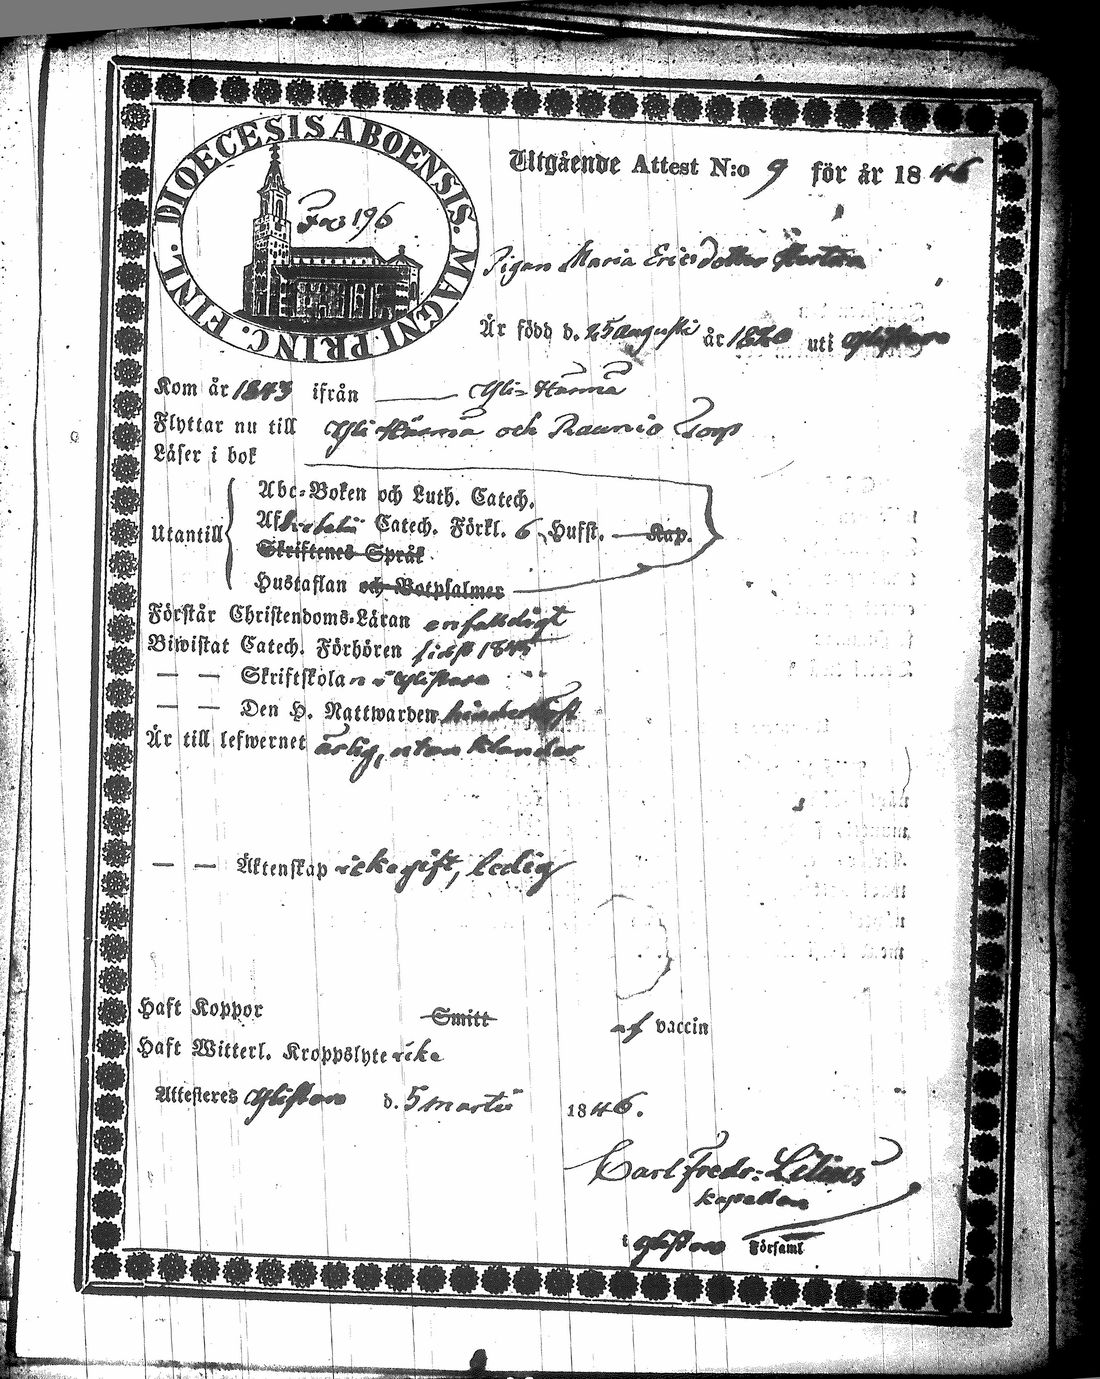 DIOECESIS ABOENSIS. MAGNI PRINC. FINL.
196
Utgående Attest N:o 9 för år 1846
Pigan Maria Ericsdotter
Är född d. 25 augusti år 1820 uti Ylistaro
Kom år 1843 ifrån Yli-Härmä
Flyttar nu till Yli Härmä och Raunio Torp
Läser i bok
Utantill
Abc-Boken och Luth. Catech.
Catech. Förkl. 6 Hufst. — Kap.
Skriftenes Språk
Hustaflan och Botpsalmer
Förstår Christendoms-Läran enfaldigt
Biwistat Catech. Förhören sidst 1845
— — Skriftskolan i Ylistaro
— — Den H. Nattwarden
Är till lefwernet ärlig, utan klander
— — Äktenskap icke gift, ledig
Haft Koppor Smitt af vaccin
Haft Witterl. Kroppslyte icke
Attesteres Ylistaro d. 5 martii 1846.
Carl Fredr: Lilius
kapellan
i Ylistaro Församl